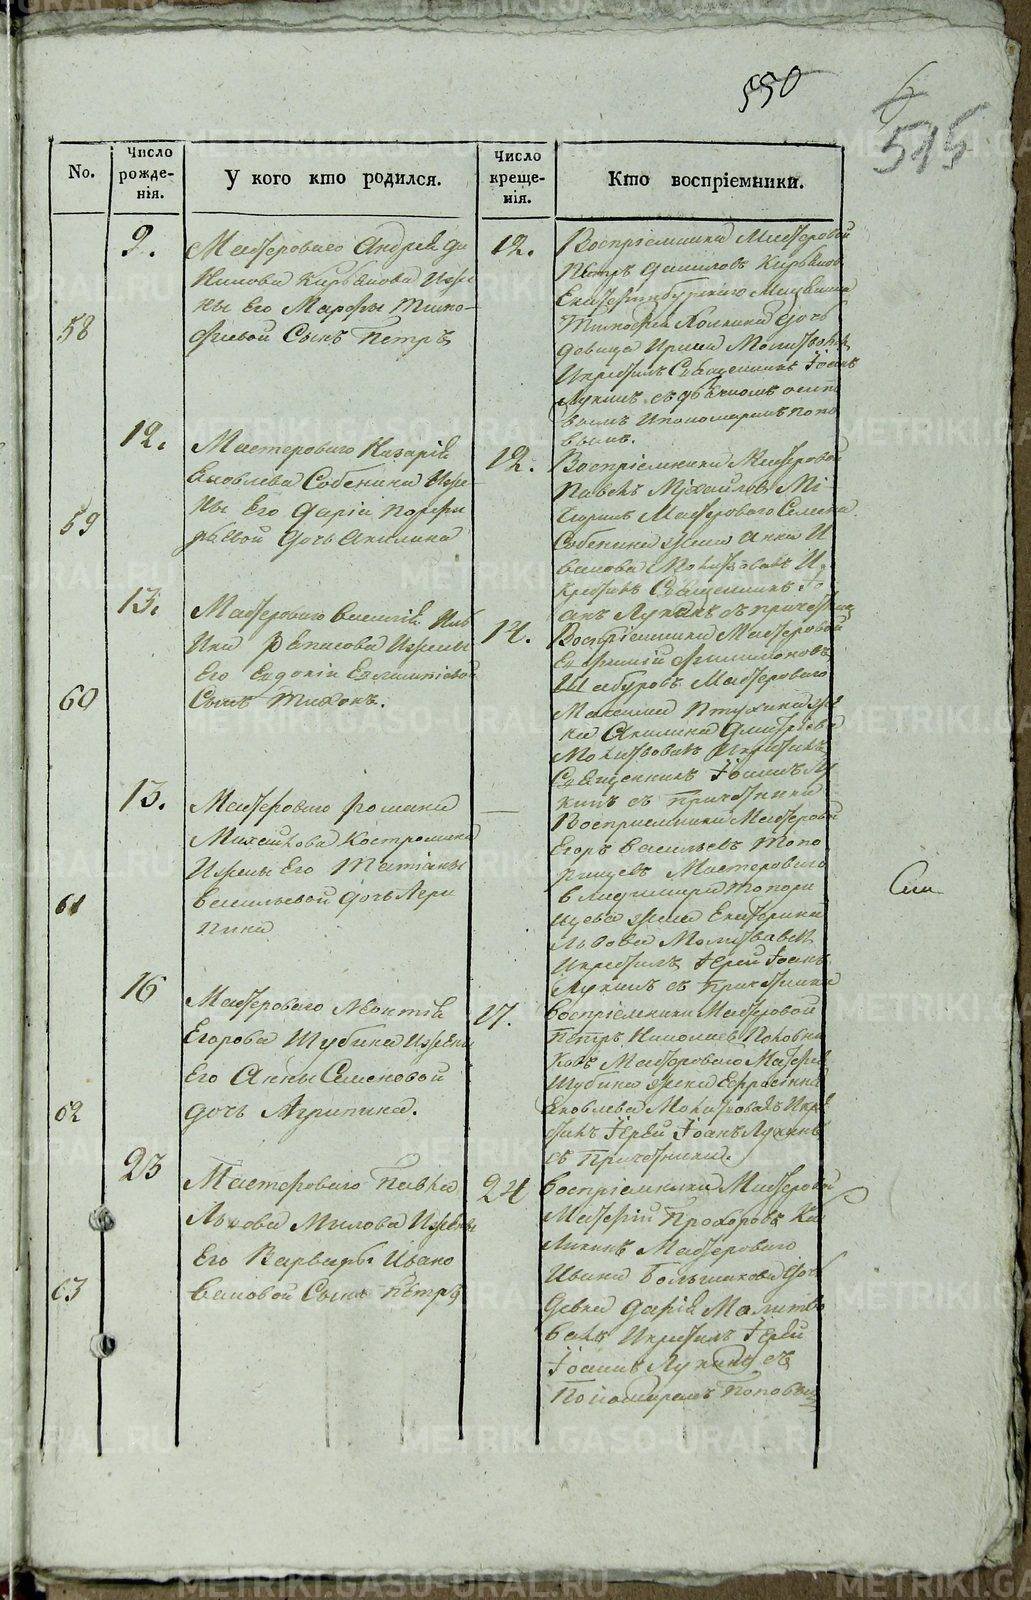 550
515
No.
Число рожденія.
У кого кто родился.
Число крещенія.
Кто воспріемники.
58
2.
Мастероваго Андрея Да
нилова Кирьянова и же
ны его Марфы Тимо-
феевой Сынъ Петръ
12.
Воспріемники Мастеровой
Петръ Даниловъ Кирьянов
Екатеринбургскаго
Тимофея дочь
девица Ирина Молитвовалъ
и крестилъ Священникъ Іоаннъ
Лукинъ съ
вымъ и пономаремъ попо
вымъ.
59
12.
Мастероваго Назарія
Яковлева Собенина и же
ны его Даріи Порфи
рьевой дочь Акилина
12.
Воспріемники Мастеровой
Павелъ Михайловъ Мі
Мастероваго Семена
Собенина жена Анна И
ванова Молитвовалъ и
крестилъ Священникъ Іо
анъ Лукинъ съ причетники
60
13.
Мастероваго Василія
и жены
его Евдокіи
Сынъ Тихонъ.
14.
Воспріемники Мастеровой
Евфимій Филимоновъ
Шабуровъ Мастероваго
Максима Птухина же
на Акилина Дмитріева
Молитвовалъ и крестилъ
Священникъ Іоаннъ Лу
кинъ съ причетники
61
13.
Мастероваго Романа
Михайлова Костромина
и жены его Татіаны
Васильевой дочь Агри
пина
—
Воспріемники Мастеровой
Егоръ Васильевъ Топо
рищевъ Мастероваго
Владимира Топори
щева жена Екатерина
Львова Молитвовалъ
и крестилъ Іерей Іоаннъ
Лукинъ съ Причетники
62
16
Мастероваго Леонтія
Егорова Шубина и жены
его Анны Семеновой
дочь Агрипина.
17.
Воспріемники Мастеровой
Петръ Николаевъ Половни
ковъ Мастероваго Матфея
Шубина жена Ефросинья
Яковлева Молитвовалъ и кре
стилъ Іерей Іоанъ Лукинъ
съ Причетники.
63
23
Мастероваго Павла
Львова Милова и жены
его Варвары Ивано
вановой Сынъ Петръ
24
Воспріемники Мастеровой
Матфій Прохоровъ Ка
линин Мастероваго
Ивана Большакова дочь
девка Дарія Молитво
валъ и крестилъ Іерей
Іоаннъ Лукинъ съ
Пономаремъ Поповым
METRIKI.GASO-URAL.RU